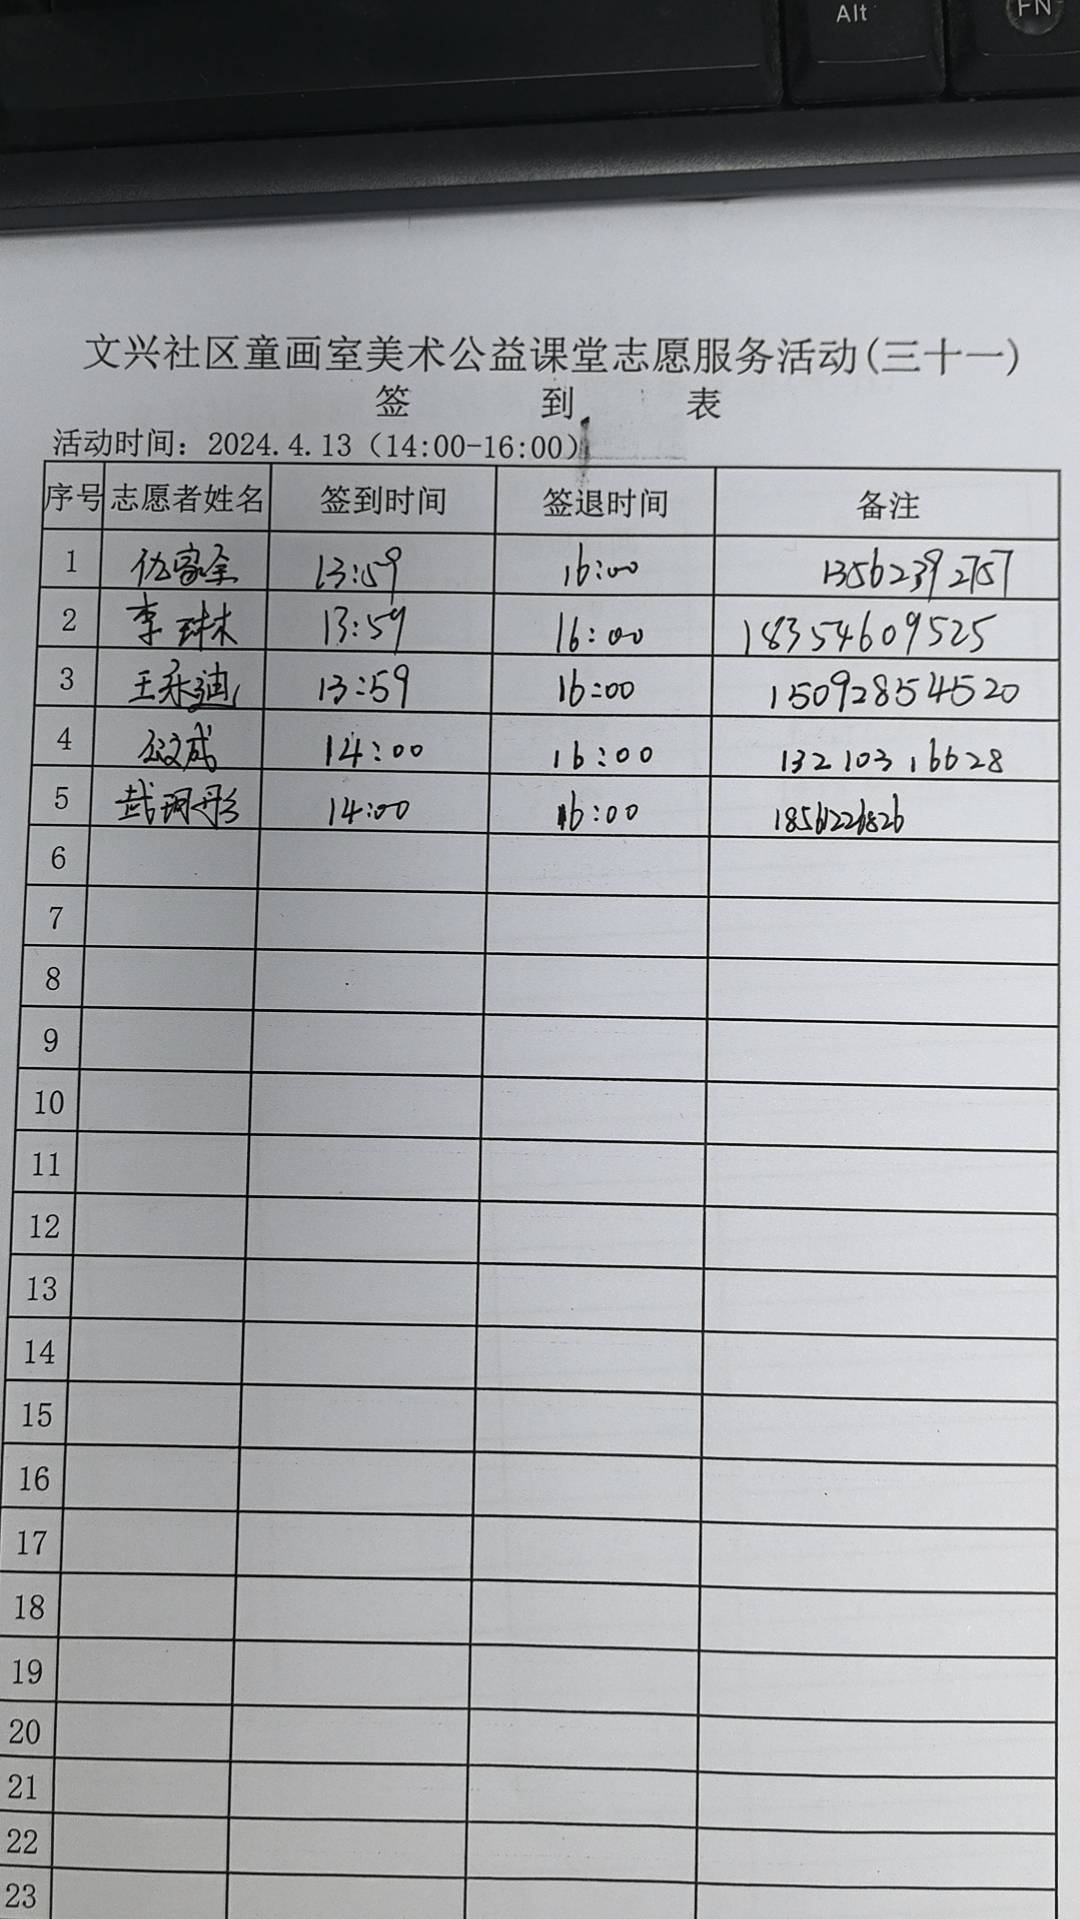 Alt
FN
文兴社区童画室美术公益课堂志愿服务活动(三十一)
签 到 表
活动时间: 2024.4.13 (14:00-16:00)
序号 志愿者姓名 签到时间 签退时间 备注
1 仇家全 13:59 16:00 13562392757
2 李琳 13:59 16:00 18354609525
3 王永迪 13:59 16:00 15092854520
4 公文成 14:00 16:00 13210316628
5 武珂彤 14:00 16:00 18561226826
6
7
8
9
10
11
12
13
14
15
16
17
18
19
20
21
22
23